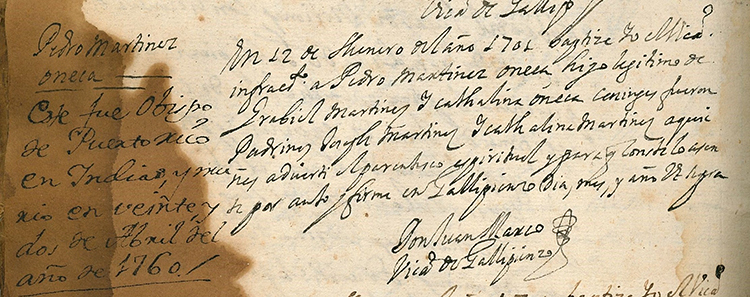 Vicº de Gallipº
Pedro Martinez
oneca
Este fue Obispo
de Puertorico
en Indias, y mu
rio en veinte, y
dos de Abril del
año de 1760.
En 12 de Henero del año 1701 baptize Yo Vicº.
infractº a Pedro Martinez oneca hijo legitimo de
Grabiel Martinez Y cathalina oneca conjuges fueron
Padrinos Joseph Martinez Y cathalina Martinez a quie
nes adverti el parentesco espiritual y para q conste lo asen
te por auto y firme en Gallipienzo dia, mes, y año Vt supra
Don Juan Marco
Vicº de Gallipienzo
baptize Yo Vicº